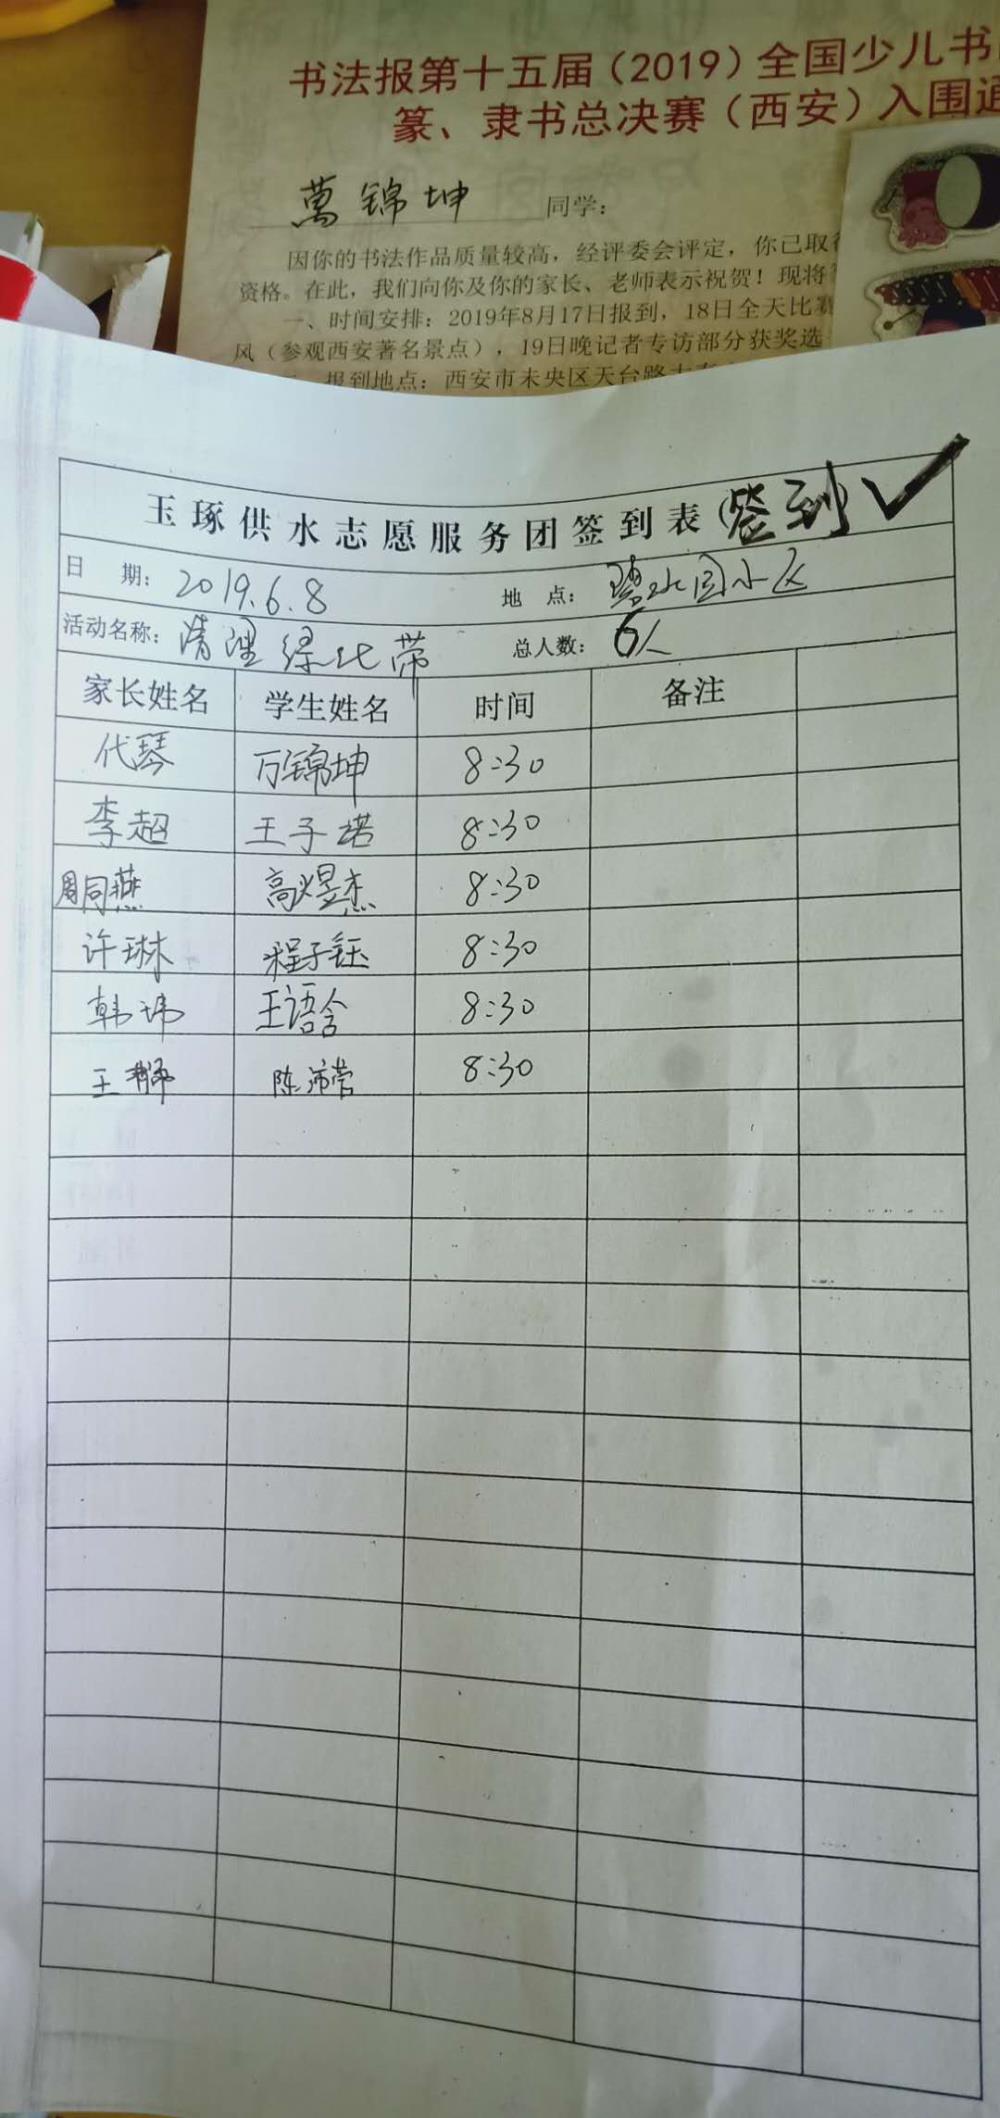 书法报第十五届（2019）全国少儿书
篆、隶书总决赛（西安）入围通
萬锦坤 同学：
因你的书法作品质量较高，经评委会评定，你已取
资格。在此，我们向你及你的家长、老师表示祝贺！现将
一、时间安排：2019年8月17日报到，18日全天比赛
风（参观西安著名景点），19日晚记者专访部分获奖选
报到地点：西安市未央区天台路
玉琢供水志愿服务团签到表（签到）✓
日 期：2019.6.8 地 点：碧水园小区
活动名称：清理绿化带 总人数：6人
家长姓名 学生姓名 时间 备注
代琴 万锦坤 8:30
李超 王子 8:30
周同燕 高煜杰 8:30
许琳 程子钰 8:30
韩玮 王语含 8:30
王 陈沛萱 8:30